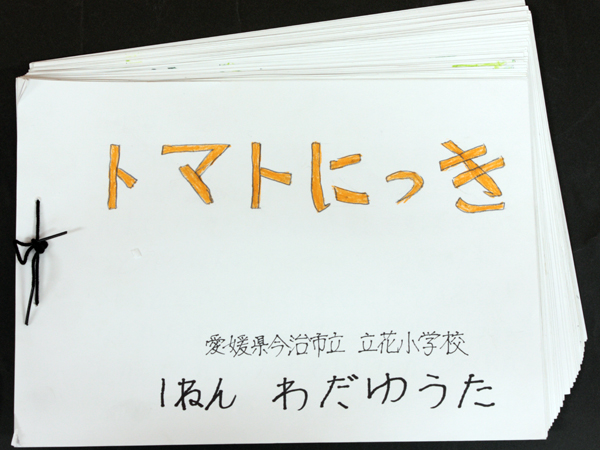 トマトにっき
愛媛県今治市立 立花小学校
1ねん わだゆうた